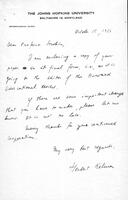 THE JOHNS HOPKINS UNIVERSITY
BALTIMORE 18, MARYLAND
October 18, 1956
Dear Professor
I am enclosing a copy of your
paper in its final form, as it is
going to the editor of the Harvard
Educational Review.
If there are some important changes
that you have to make, please let me
know. It is not too late.
Many thanks for your continued
cooperation.
My very best regards,
Herbert Kelman